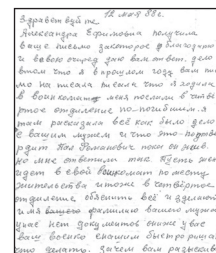 12 мая 88г.
Здравствуйте
Александра Ефимовна получила
ваше письмо закоторое благодарю
и всвою очеред даю вам ответ, дело
втом что я впрошлом году вам пи
мо на писала что я ходила
в воинкомат меня послали в четве
ртое отделение по погибшим. я
там рассказала всё как было дело
с вашим мужем и что это подтве
рдит Пол Романович пока он живой.
но мне ответили так. Пусть же
идет в свой Военкомат по месту
жительства и тоже в четвёртое
отделение обяснить всё и зделают
имя вашего фамилию вашего мужа
унас нет документов они же у вас
ваш военко
что делать. Зачем вам разыскив